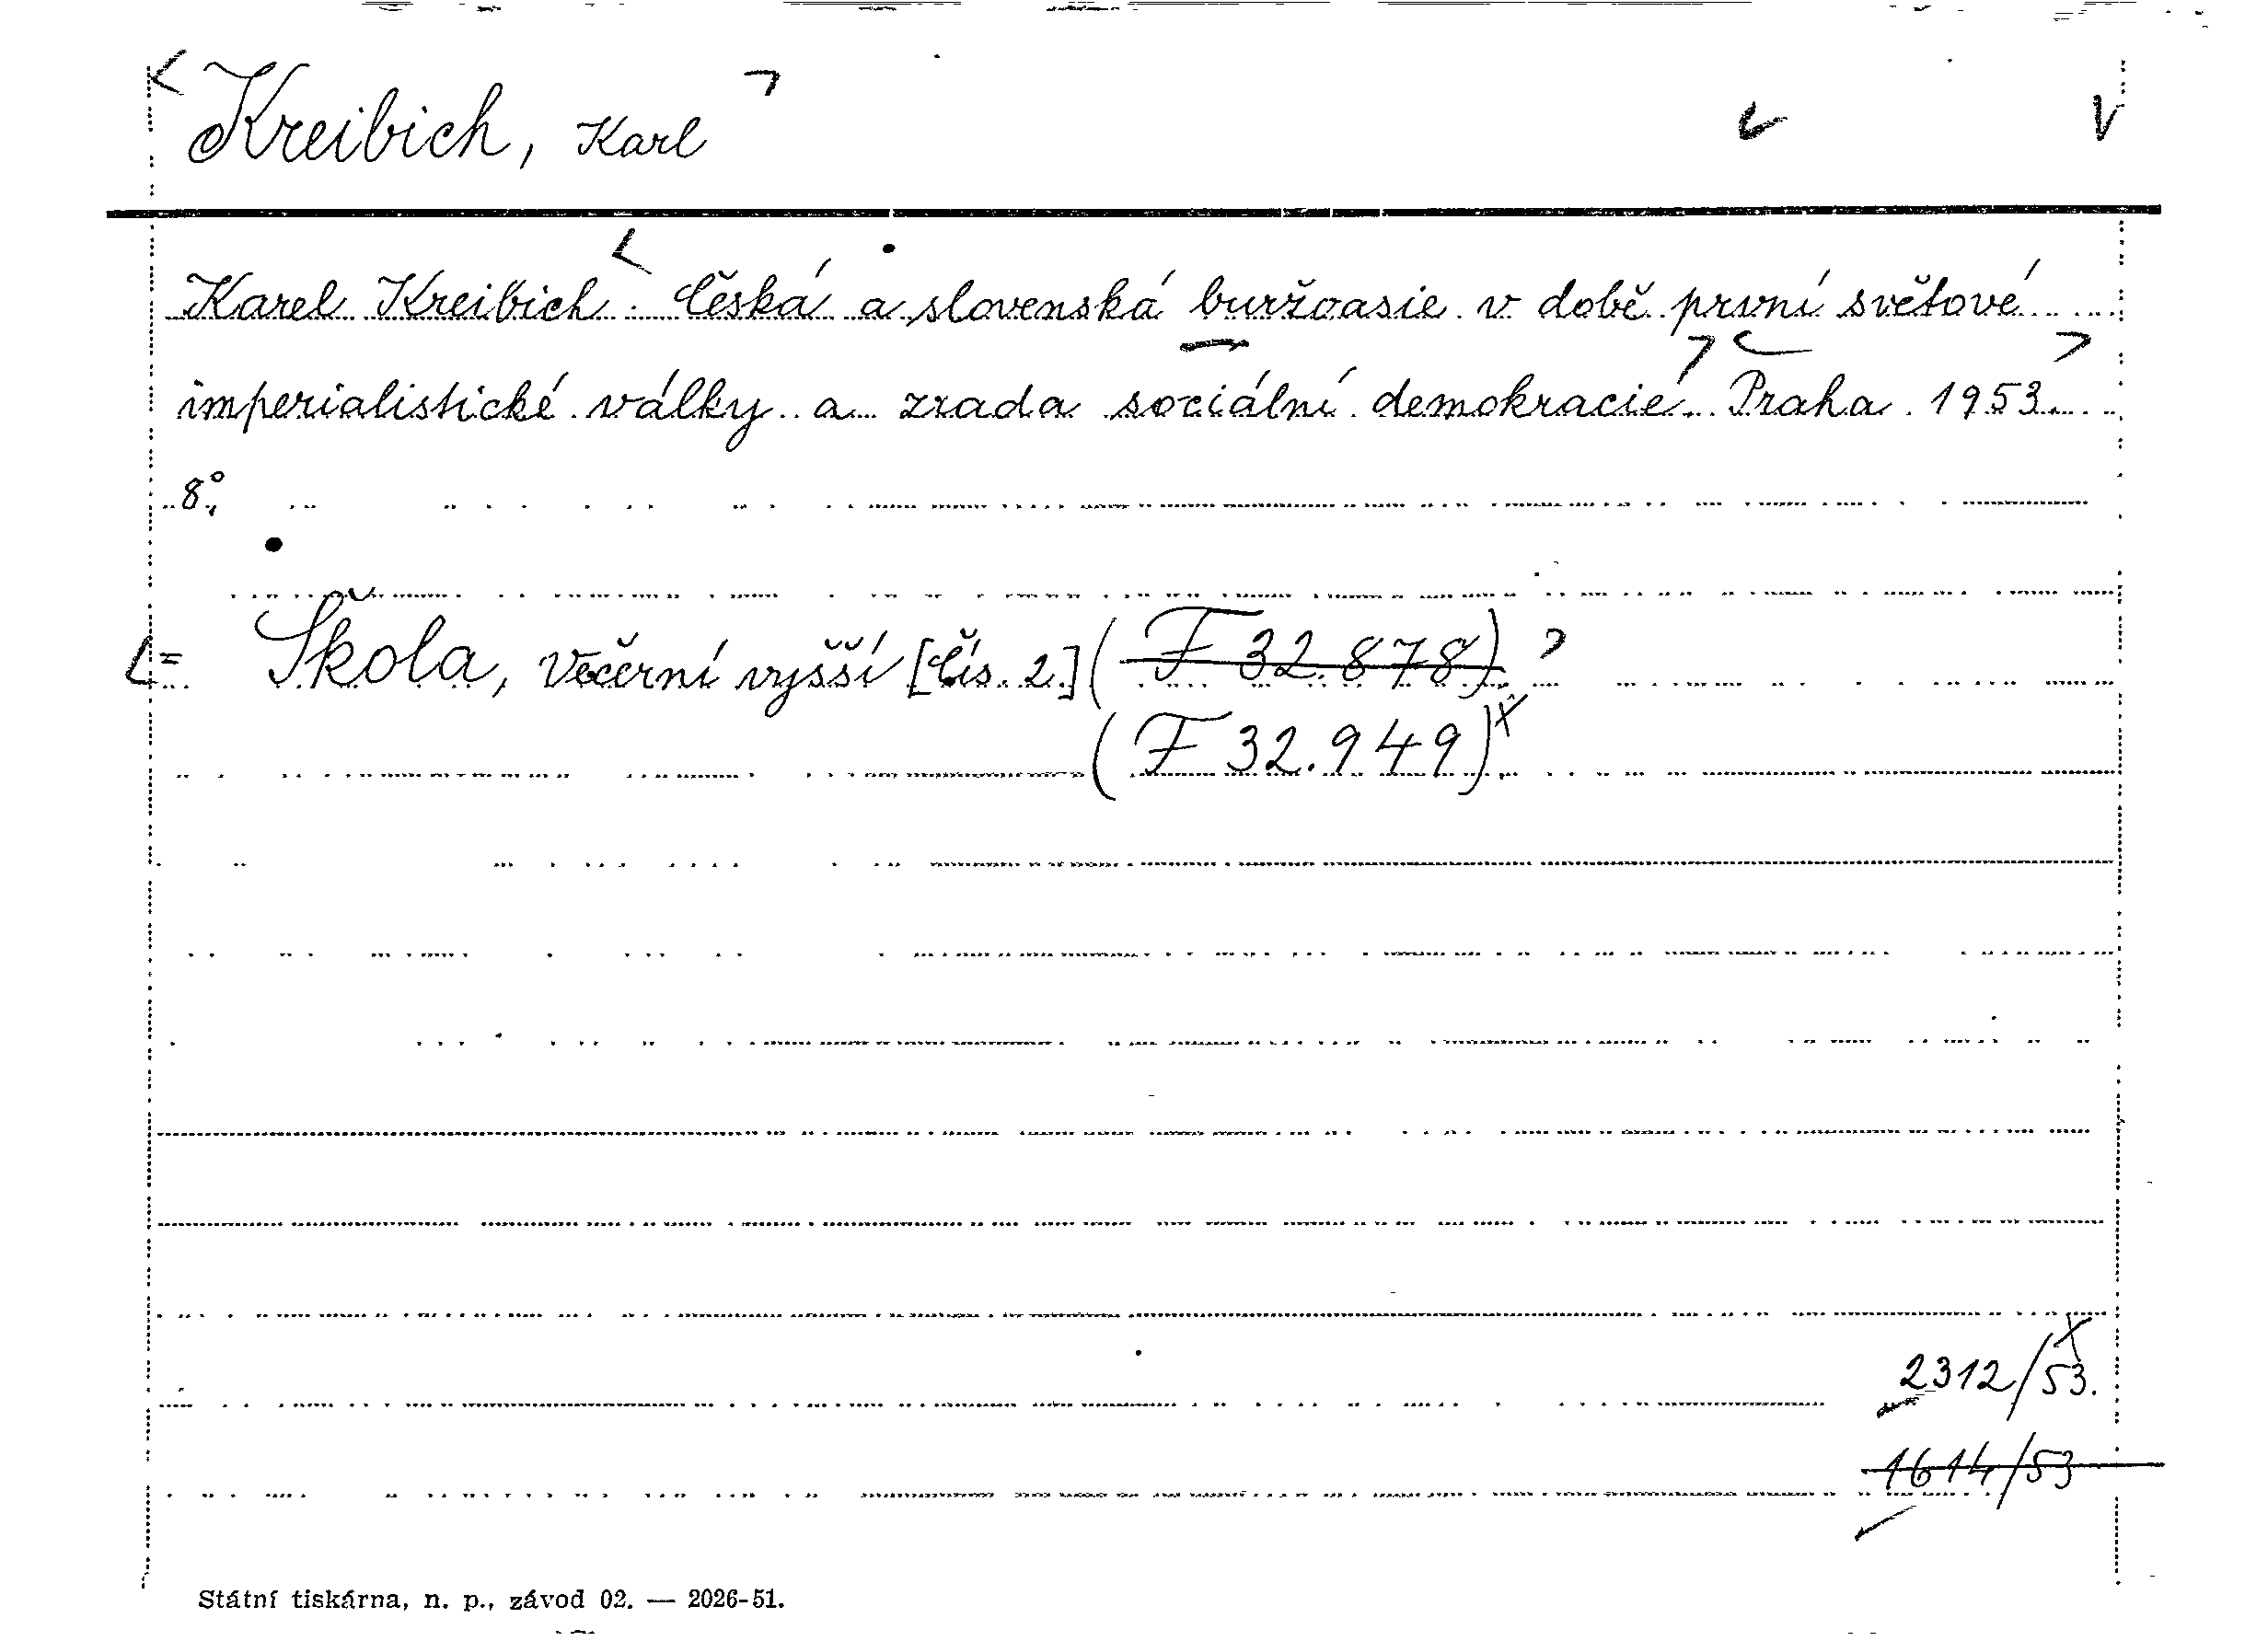 Kreibich, Karl
Karel Kreibich. Česká a slovenská buržoasie v době první světové
imperialistické války a zrada sociální demokracie. Praha 1953.
8°.,
= Škola, Večerní vyšší [Čís. 2.] (F 32.878).
(F 32.949)x
2312/53.x
1614/53
Státní tiskárna, n. p., závod 02. — 2026-51.